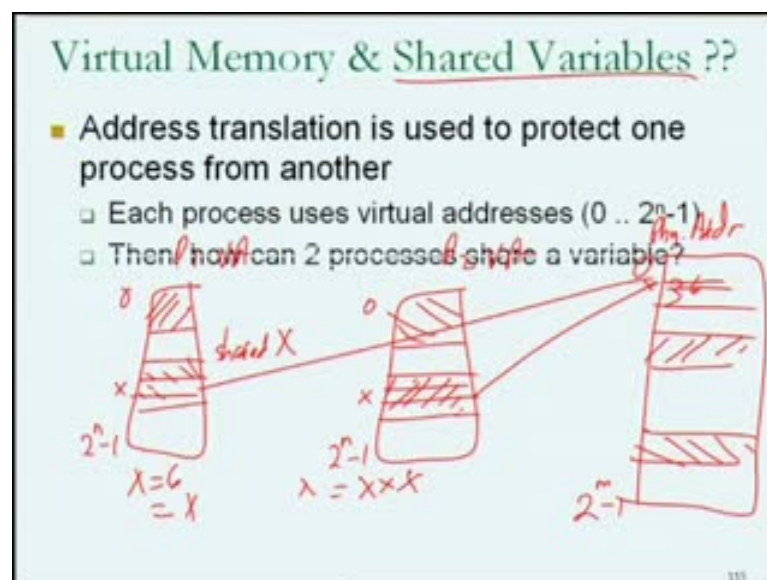 Virtual Memory & Shared Variables ??
Address translation is used to protect one
process from another
Each process uses virtual addresses (0 .. 2ⁿ-1)
Then how can 2 processes share a variable?
Addr
0
0
0
36
shared X
x
x
2ⁿ-1
2ⁿ-1
X=6
= X
X = X*X
2ᵐ-1